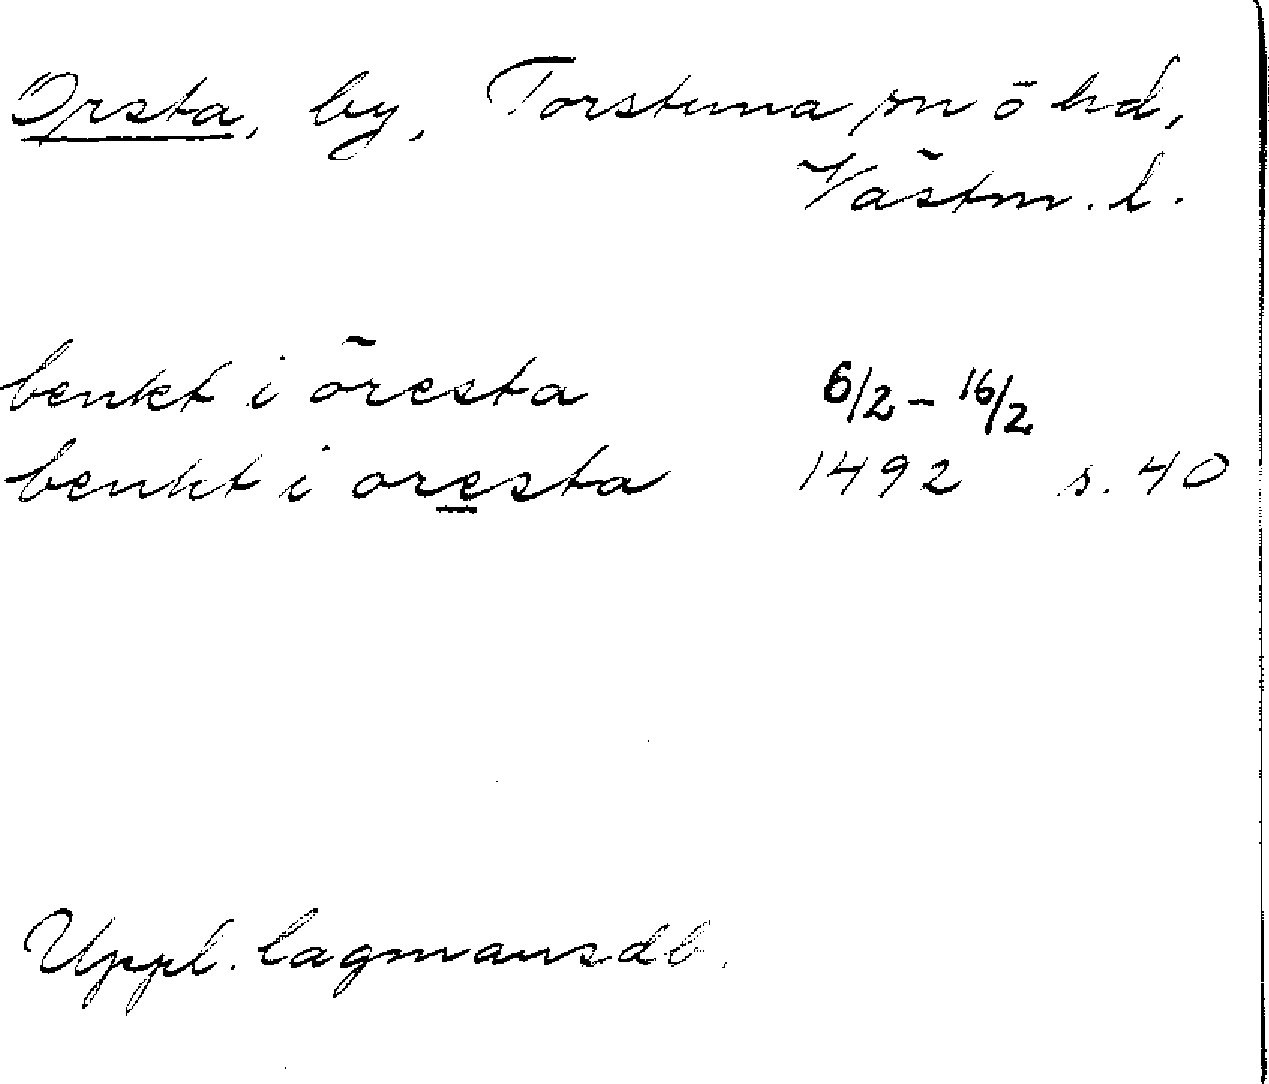 Örsta, by, Torstuna sn o hd,
Västm. l.
benkt i öresta 6/2 - 16/2
benkt i oresta 1492 s. 40
Uppl. lagmansdb.